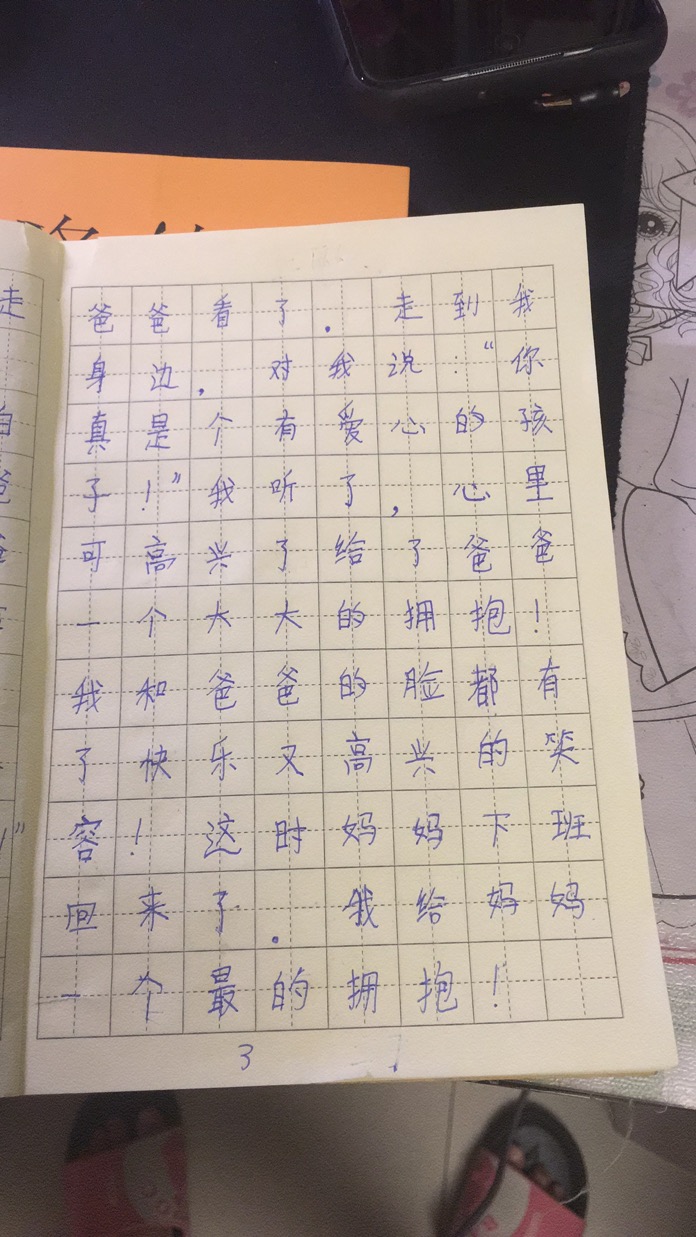 爸爸看了. 走到我
身边, 对我说:“你
真是个有爱心的孩
子!”我听了, 心里
可高兴了给了爸爸
一个大大的拥抱!
我和爸爸的脸都有
了快乐又高兴的笑
容!这时妈妈下班
回来了. 我给妈妈
一个最的拥抱!
3